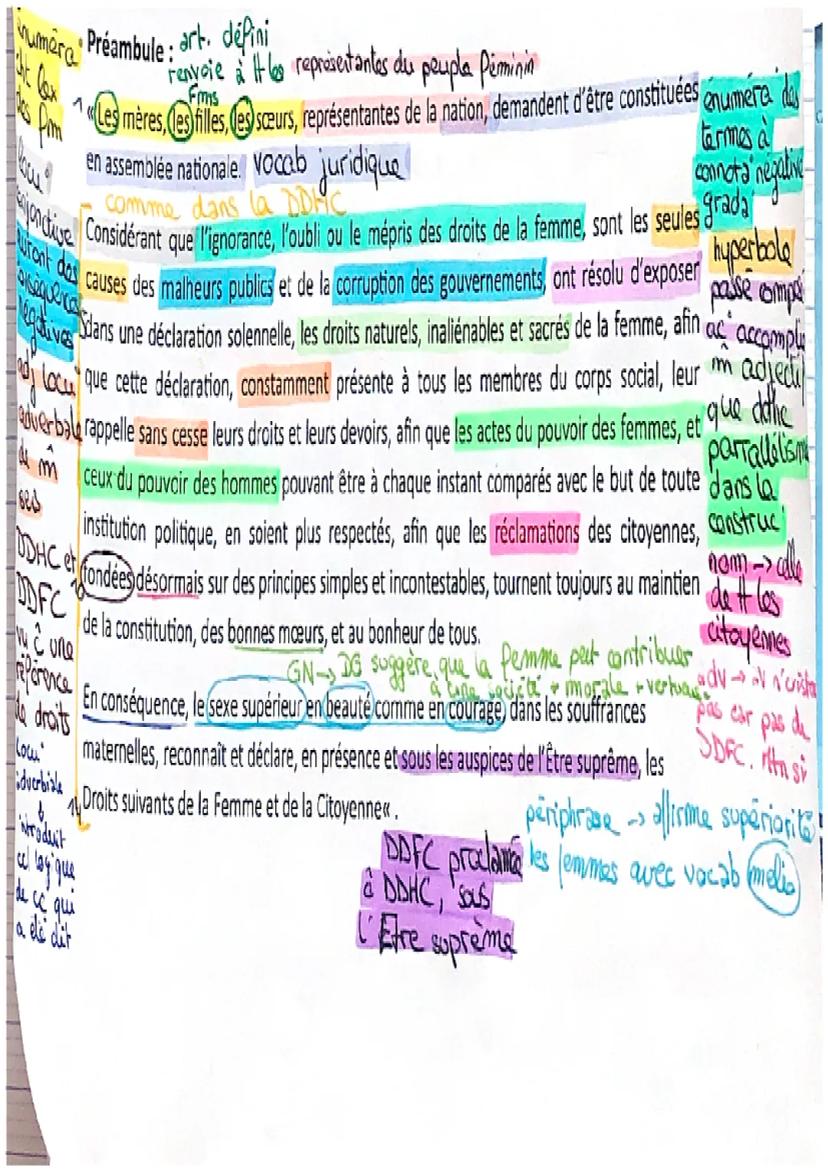 Préambule : art. défini
renvoie à tt les représentantes du peuple féminin
fms
1 « Les mères, les filles, les sœurs, représentantes de la nation, demandent d'être constituées
en assemblée nationale. vocab juridique
comme dans la DDHC
Considérant que l'ignorance, l'oubli ou le mépris des droits de la femme, sont les seules
causes des malheurs publics et de la corruption des gouvernements, ont résolu d'exposer
5 dans une déclaration solennelle, les droits naturels, inaliénables et sacrés de la femme, afin
que cette déclaration, constamment présente à tous les membres du corps social, leur
rappelle sans cesse leurs droits et leurs devoirs, afin que les actes du pouvoir des femmes, et
ceux du pouvoir des hommes pouvant être à chaque instant comparés avec le but de toute
institution politique, en soient plus respectés, afin que les réclamations des citoyennes,
10 fondées désormais sur des principes simples et incontestables, tournent toujours au maintien
de la constitution, des bonnes mœurs, et au bonheur de tous.
GN → DG suggère que la femme peut contribuer
à une société + morale + vertueuse
En conséquence, le sexe supérieur en beauté comme en courage, dans les souffrances
maternelles, reconnaît et déclare, en présence et sous les auspices de l'Être suprême, les
14 Droits suivants de la Femme et de la Citoyenne« .
énuméra°
cht lex
des fm
locu°
conjonctive
autant des
conséquences
négatives
adj locu°
adverbale
de m̂
ses
DDHC et
DDFC
vu ĉ une
référence
de droits
locu°
adverbiale
introduit
cc logique
de ce qui
a été dit
énuméra° des
termes à
connota° négative
grada°
hyperbole
passé compo
ac° accompli
m̂ adjectif
que ddhc
parallélisme
dans la
construc°
nom → celle
de tt les
citoyennes
adv → av n'exista
pas car pas de
DDFC.
périphrase → affirme supériorité
les femmes avec vocab mélio
DDFC proclamée
ĉ DDHC, sous
l'Être suprême